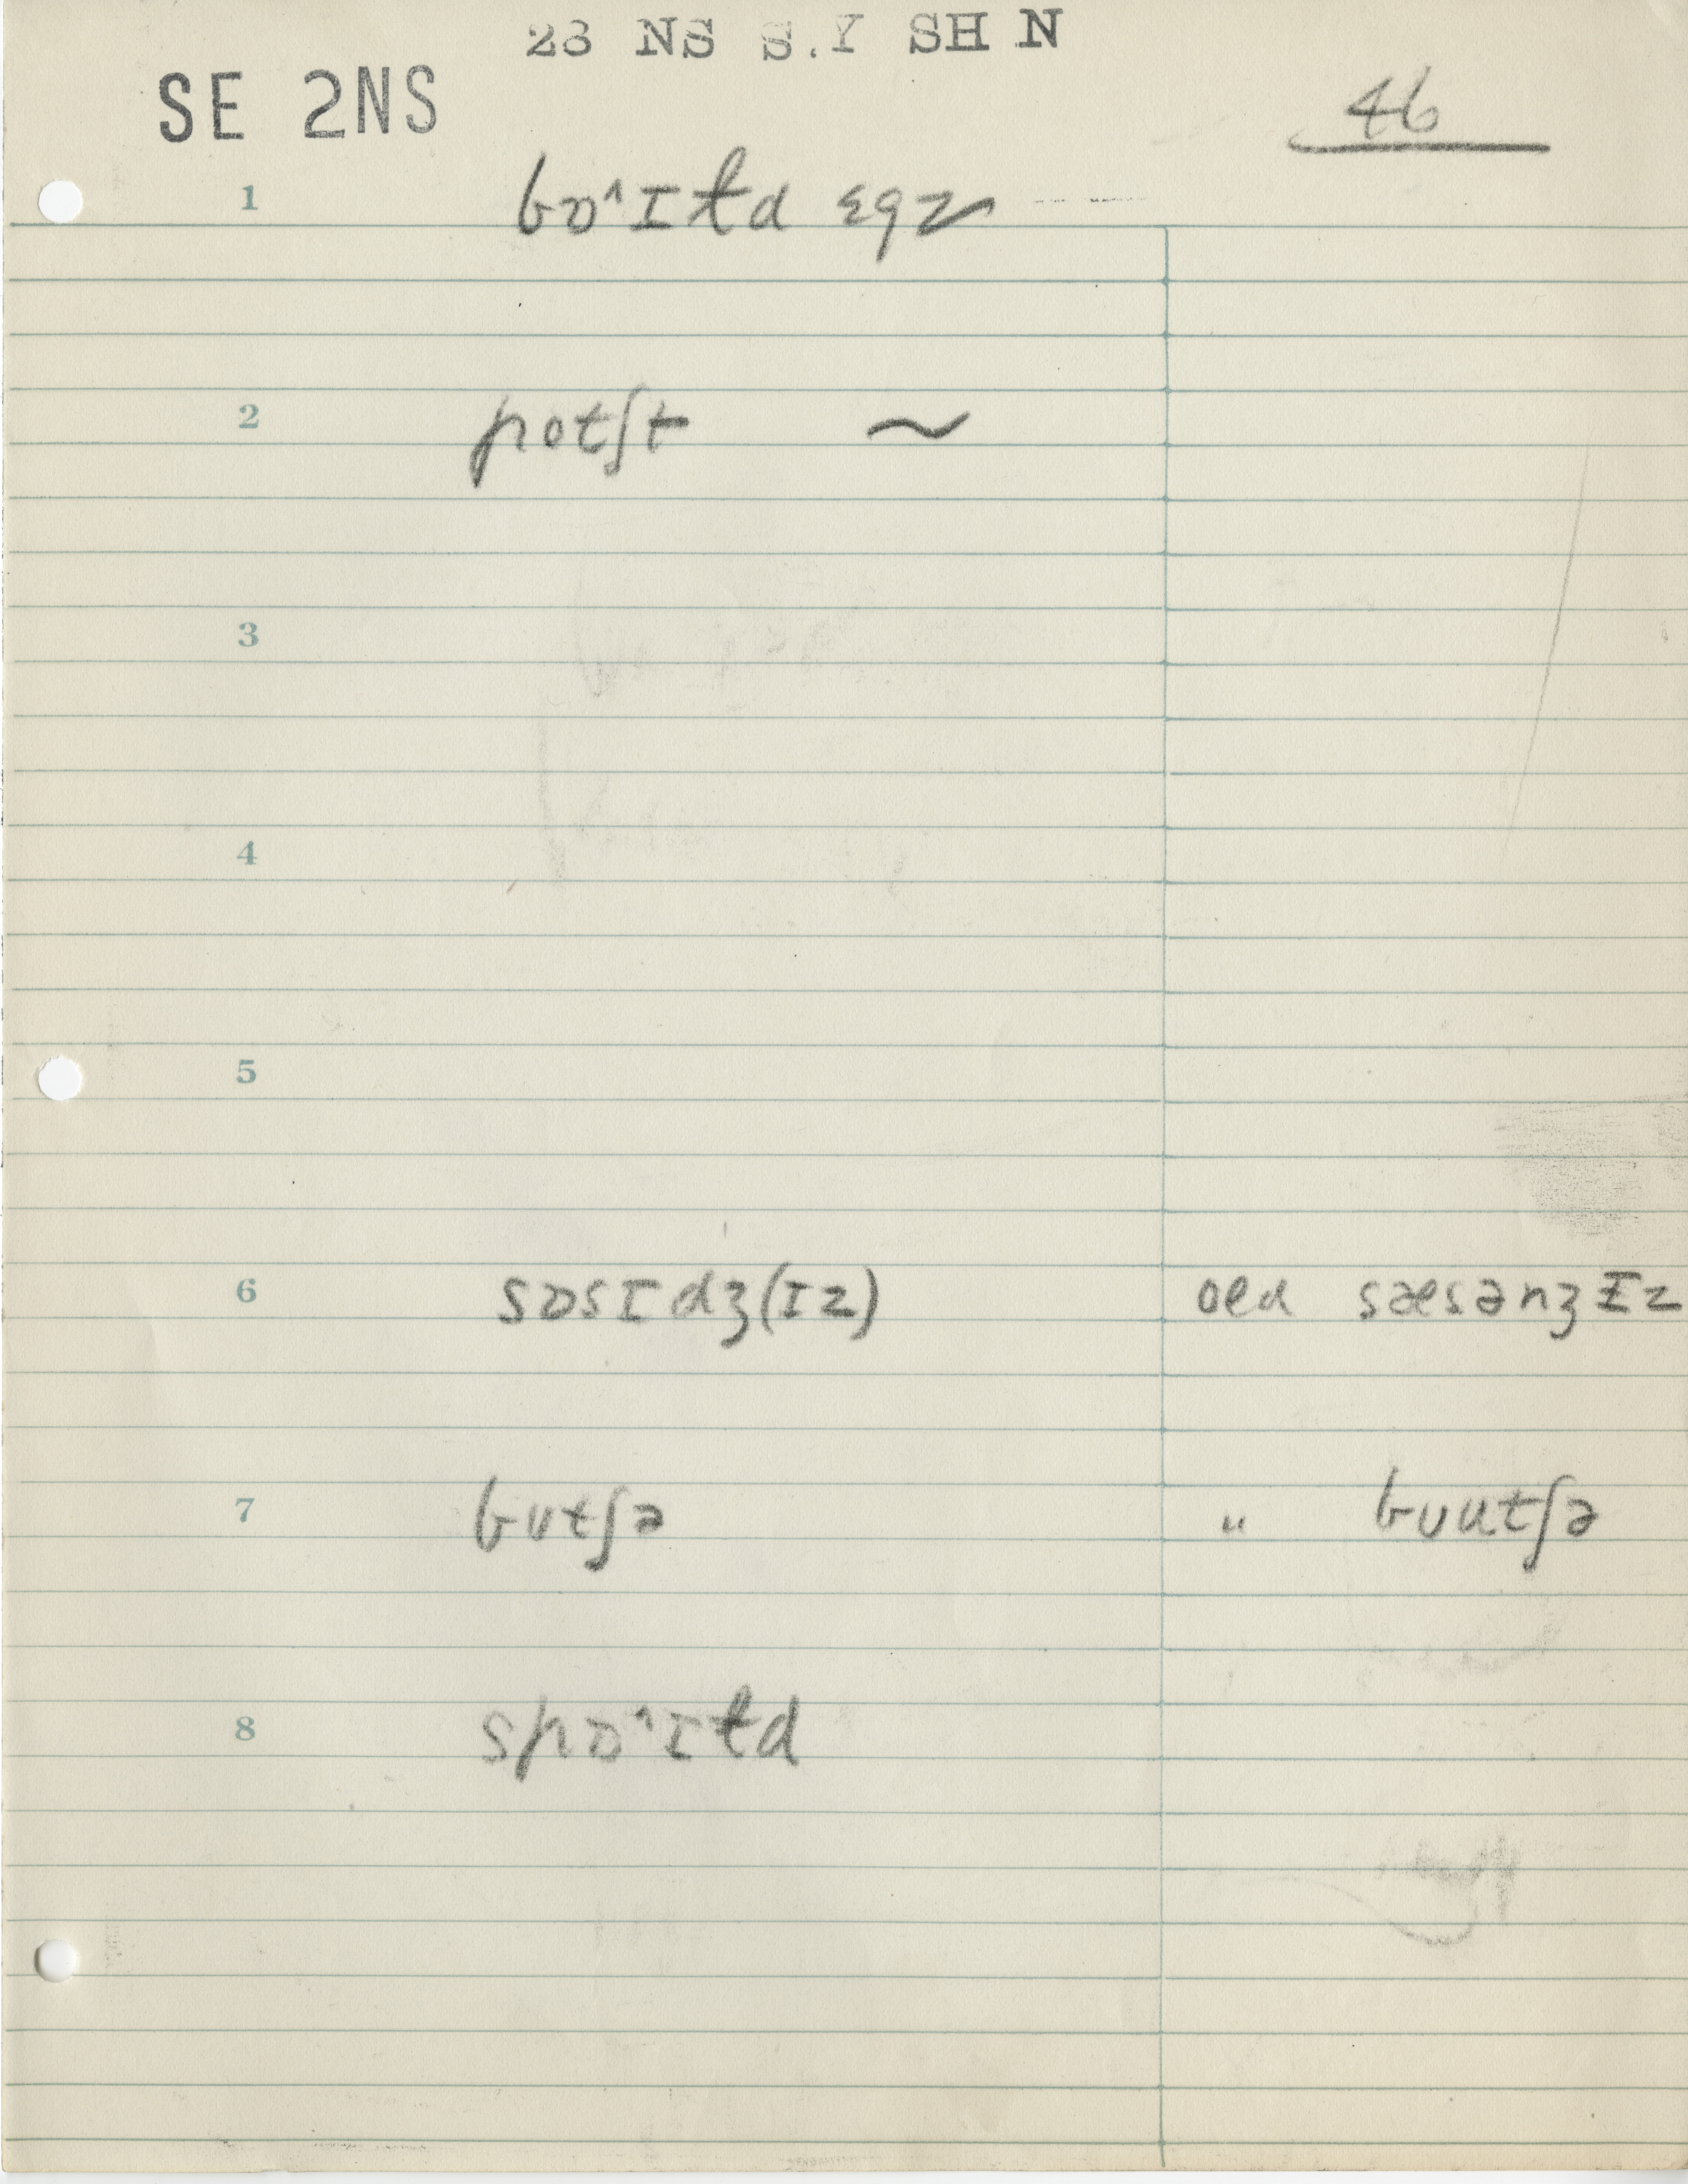 23 NS S.Y SH N
SE 2NS
46
1 bɒ˄ɪtd ɛgz
2 potʃt ~
3
4
5
6 sɒsɪdʒ(ɪz) oʊd sæsənʒɪz
7 butʃə " bʊutʃə
8 spɒ˄ɪtd